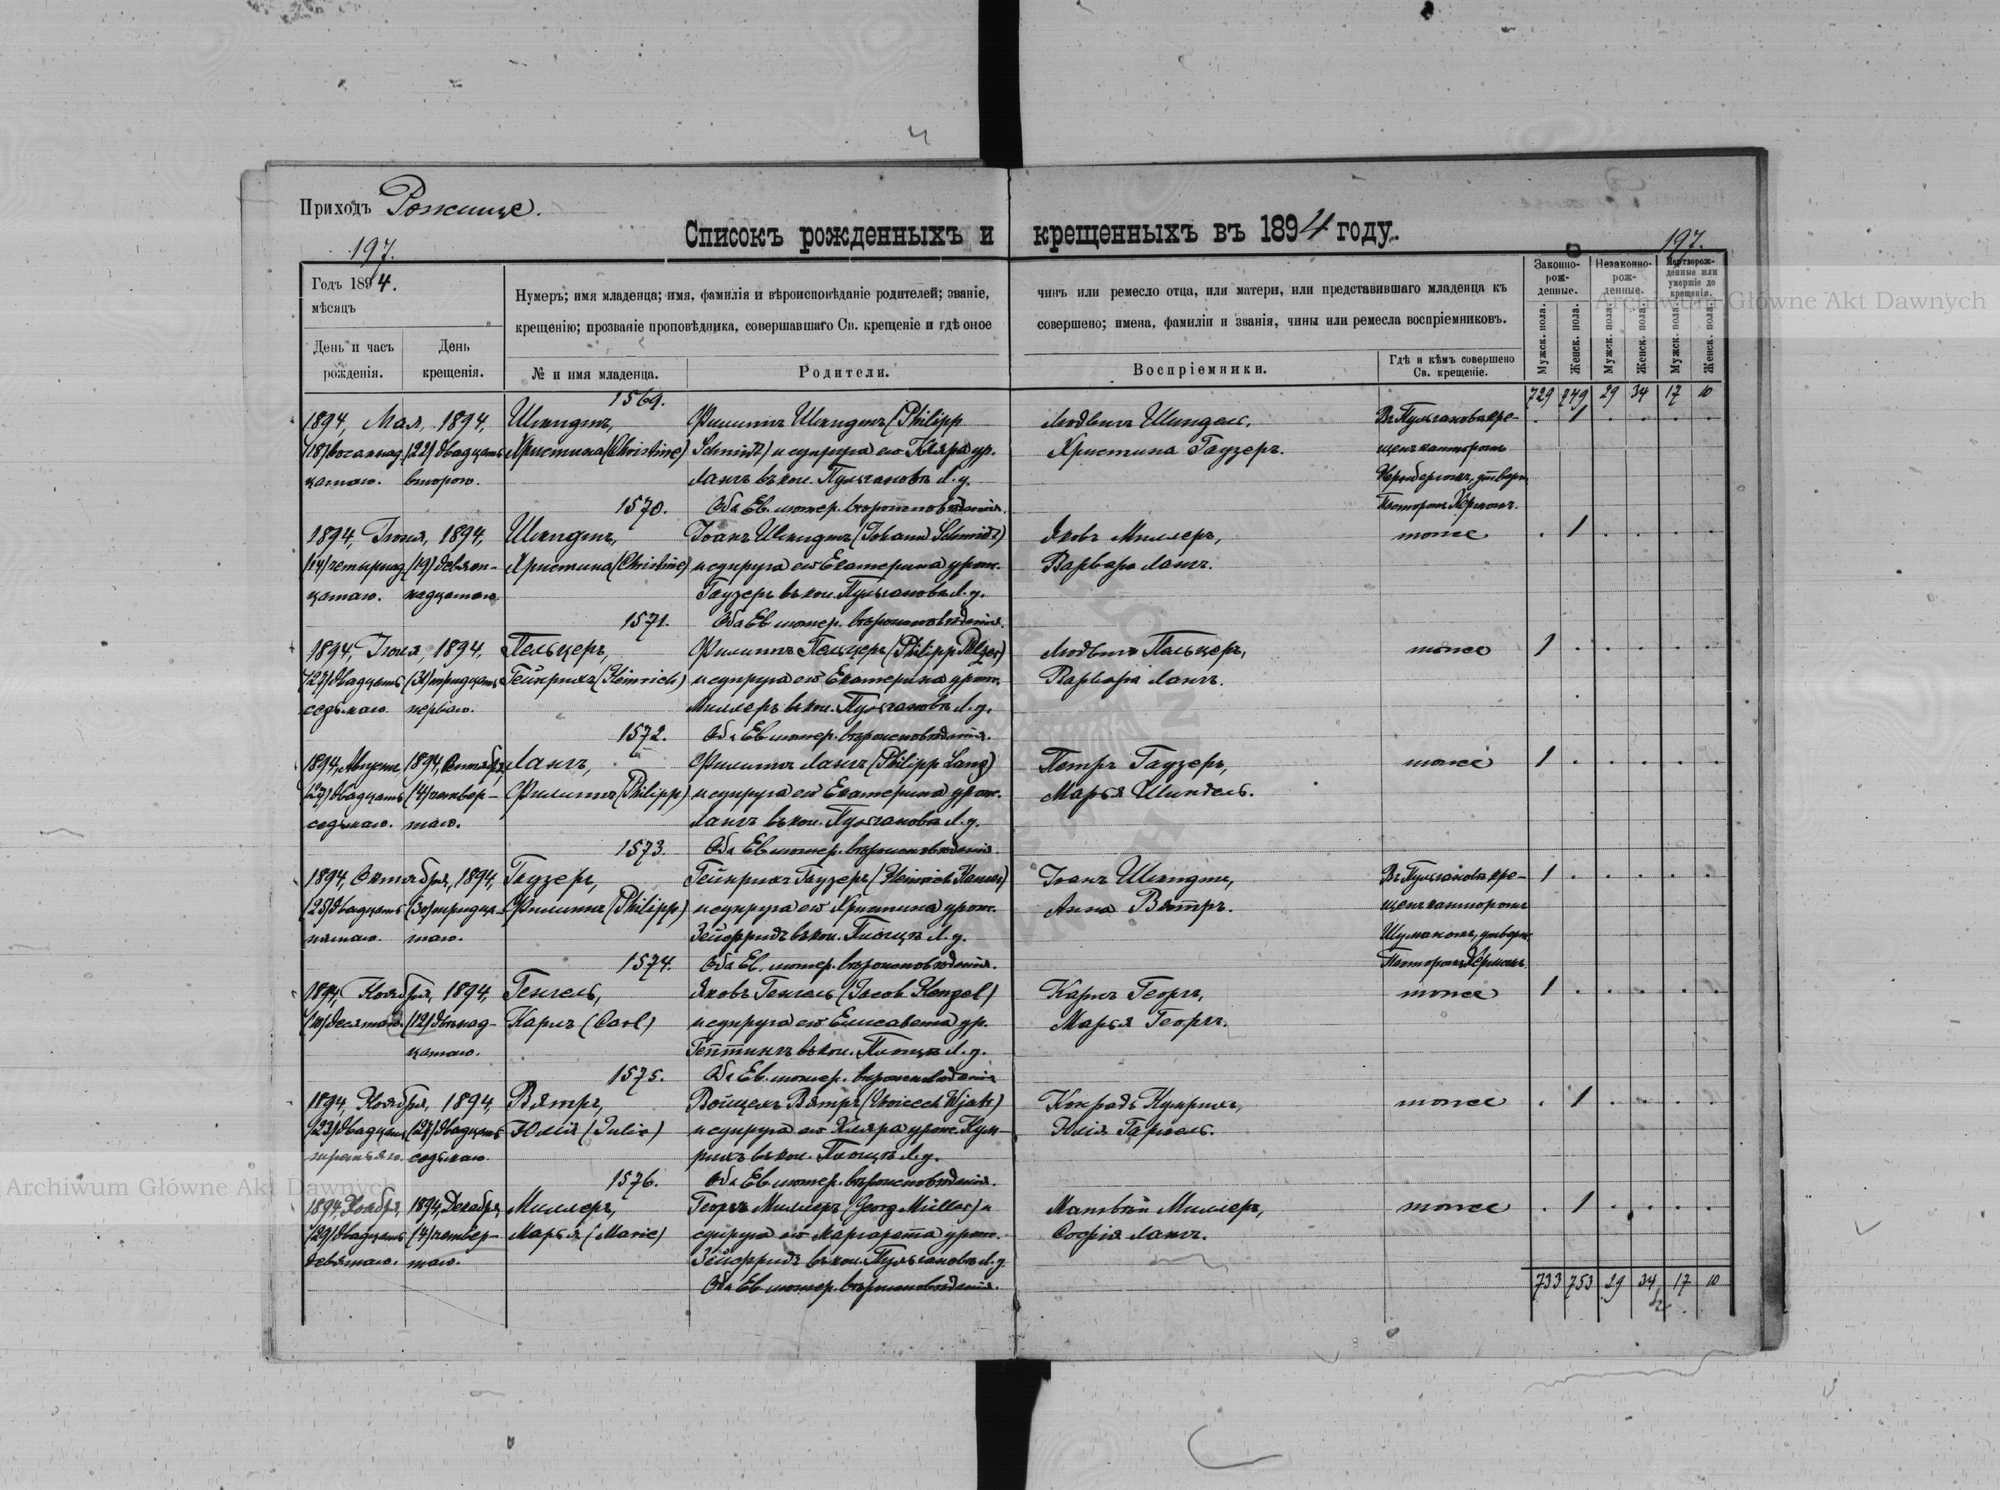 Приходъ Рожище.
197.
Списокъ рожденныхъ и крещенныхъ въ 1894 году.
197.
Годъ 1894.
мѣсяцъ
День и часъ рожденія.
День крещенія.
Нумеръ; имя младенца; имя, фамилія и вѣроисповѣданіе родителей; званіе, чинъ или ремесло отца, или матери, или представившаго младенца къ
крещенію; прозваніе проповѣдника, совершавшаго Св. крещеніе и гдѣ оное совершено; имена, фамиліи и званія, чины или ремесла воспріемниковъ.
№ и имя младенца.
Родители.
Воспріемники.
Гдѣ и кѣмъ совершено Св. крещеніе.
Законно-рож-денные.
Незаконно-рож-денные.
Мертворож-денные или умершіе до крещенія.
Мужск. пола. Женск. пола. Мужск. пола. Женск. пола. Мужск. пола. Женск. пола.
729 749 29 34 17 10
1569.
1894, Мая, 1894, Шмидтъ, Филиппъ Шмидтъ (Philipp Людвигъ Шиндель, Въ Пульгановѣ кре- . 1 . . . .
(18) восемнад (22) двадцать Христина (Christine) Schmidt) и супруга его Клара ур. Христина Гаузеръ. щенъ канторомъ
цатаго. второго. Лангъ въ кол. Пульгановъ Л. у.
1570. Оба Ев. лютер. вѣроисповѣданія. Пасторомъ Керномъ.
1894, Іюня, 1894, Шмидтъ, Іоанъ Шмидтъ (Johann Schmidt) Яковъ Миллеръ, тоже . 1 . . . .
(14) четырнад (19) девят- Христина (Christine) и супруга его Екатерина урож. Варвара Лангъ.
цатаго. надцатаго. Гаузеръ въ кол. Пульгановъ Л. у.
1571. Оба Ев. лютер. вѣроисповѣданія.
1894, Іюля, 1894, Пельцеръ, Филиппъ Пельцеръ (Philipp Pelzer) Людвигъ Пельцеръ, тоже 1 . . . . .
(27) двадцать (31) тридцать Гейнрихъ (Heinrich) и супруга его Екатерина урож. Варвара Лангъ.
седьмаго. перваго. Миллеръ въ кол. Пульгановъ Л. у.
1572. Оба Ев. лютер. вѣроисповѣданія.
1894, Августа 1894, Сентября, Лангъ, Филиппъ Лангъ (Philipp Lang) Петръ Гаузеръ, тоже 1 . . . . .
(27) двадцать (4) четвер- Филиппъ (Philipp) и супруга его Екатерина урож. Марья Шиндель.
седьмаго. таго. Лангъ въ кол. Пульгановъ Л. у.
1573. Оба Ев. лютер. вѣроисповѣданія.
1894, Октября, 1894, Гаузеръ, Гейнрихъ Гаузеръ (Heinrich Hauser) Іоанъ Шмидтъ, Въ Пульгановѣ кре- 1 . . . . .
(25) двадцать (30) тридца- Филиппъ (Philipp) и супруга его Христина урож. Анна Вятръ. щенъ канторомъ
пятаго. таго. Зейфридъ въ кол. Л. у. Шуманомъ, утверж.
1574. Оба Ев. лютер. вѣроисповѣданія. Пасторомъ Керномъ.
1894, Ноября, 1894, Генгель, Яковъ Генгель (Jacob Hengel) Карлъ Георгъ, тоже 1 . . . . .
(10) десятаго. (12) двѣнад- Карлъ (Carl) и супруга его Елисавета ур. Марья Георгъ.
цатаго. въ кол. Л. у.
1575. Оба Ев. лютер. вѣроисповѣданія
1894, Ноября, 1894, Вятръ, Войцехъ Вятръ (Woicech Wjatr) Конрадъ Кумрихъ, тоже . 1 . . . .
(23) двадцать (27) двадцать Юлія (Julie) и супруга его Клара урож. Кум- Юлія Гармель.
третьяго. седьмаго. рихъ въ кол. Л. у.
1576. Оба Ев. лютер. вѣроисповѣданія.
1894, Ноября, 1894, Декабря, Миллеръ, Георгъ Миллеръ (Georg Müller) и Матвѣй Миллеръ, тоже . 1 . . . .
(29) двадцать (4) четвер- Марья (Marie) супруга его Маргарета урож. Софія Лангъ.
девятаго. таго. Зейфридъ въ кол. Пульгановъ Л. у.
Оба Ев. лютер. вѣроисповѣданія.
733 753 29 34 17 10
Archiwum Główne Akt Dawnych
Archiwum Główne Akt Dawnych